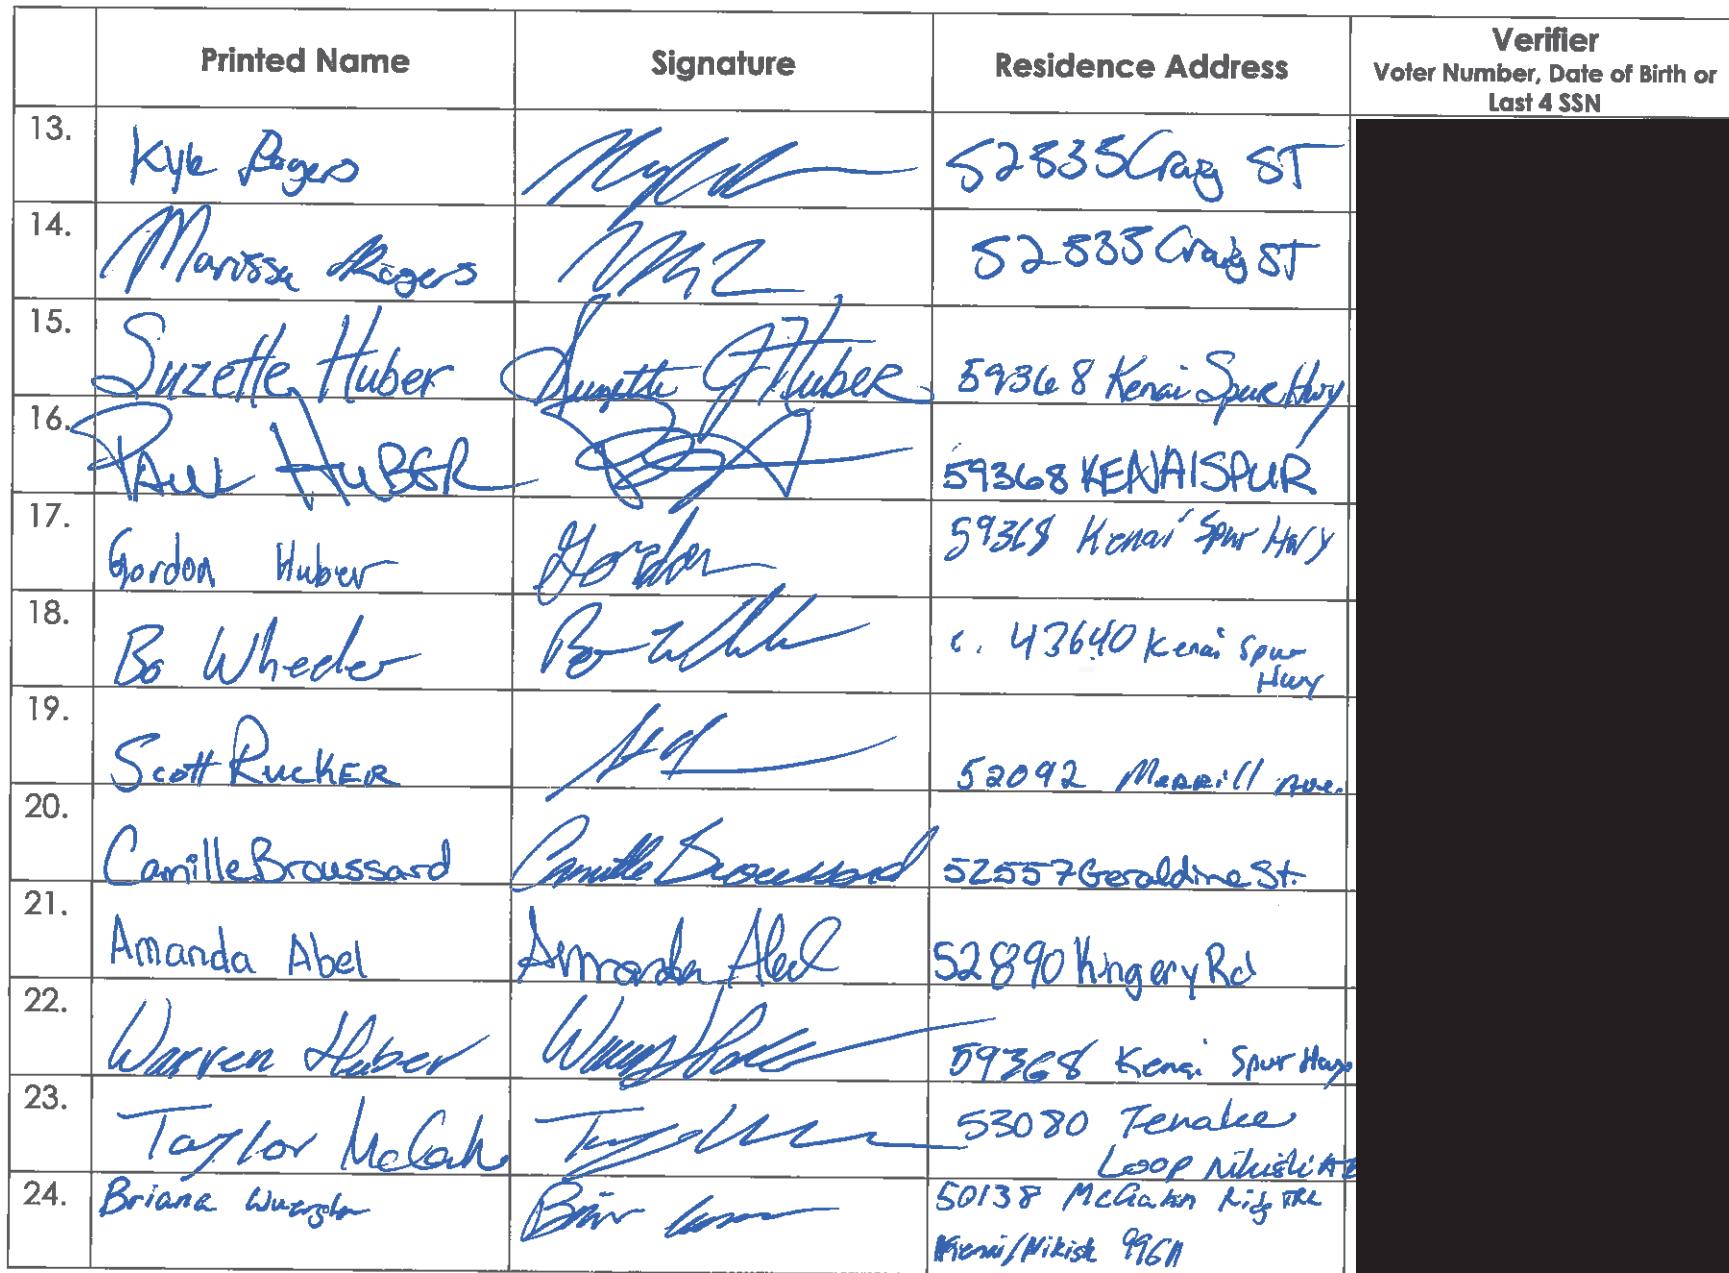 Printed Name Signature Residence Address Verifier
Voter Number, Date of Birth or
Last 4 SSN
13. Kyle Rogers 52835 Craig ST
14. Marissa Rogers 52835 Craig ST
15. Suzette Huber Suzette J Huber 59368 Kenai Spur Hwy
16. PAUL HUBER 59368 KENAI SPUR
17. Gordon Huber Gordon 59368 Kenai Spur Hwy
18. Bo Wheeler 43640 Kenai Spur
Hwy
19. Scott RuckER 52092 Merrill Ave.
20. Camille Broussard Camille Broussard 52557 Geraldine St.
21. Amanda Abel Amanda Abel 52890 Kingery Rd
22. Warren Huber 59368 Kenai Spur Hwy
23. Taylor 53080 Tenakee
Loop Nikiski
24. Briana 50138
Kenai/Nikisk